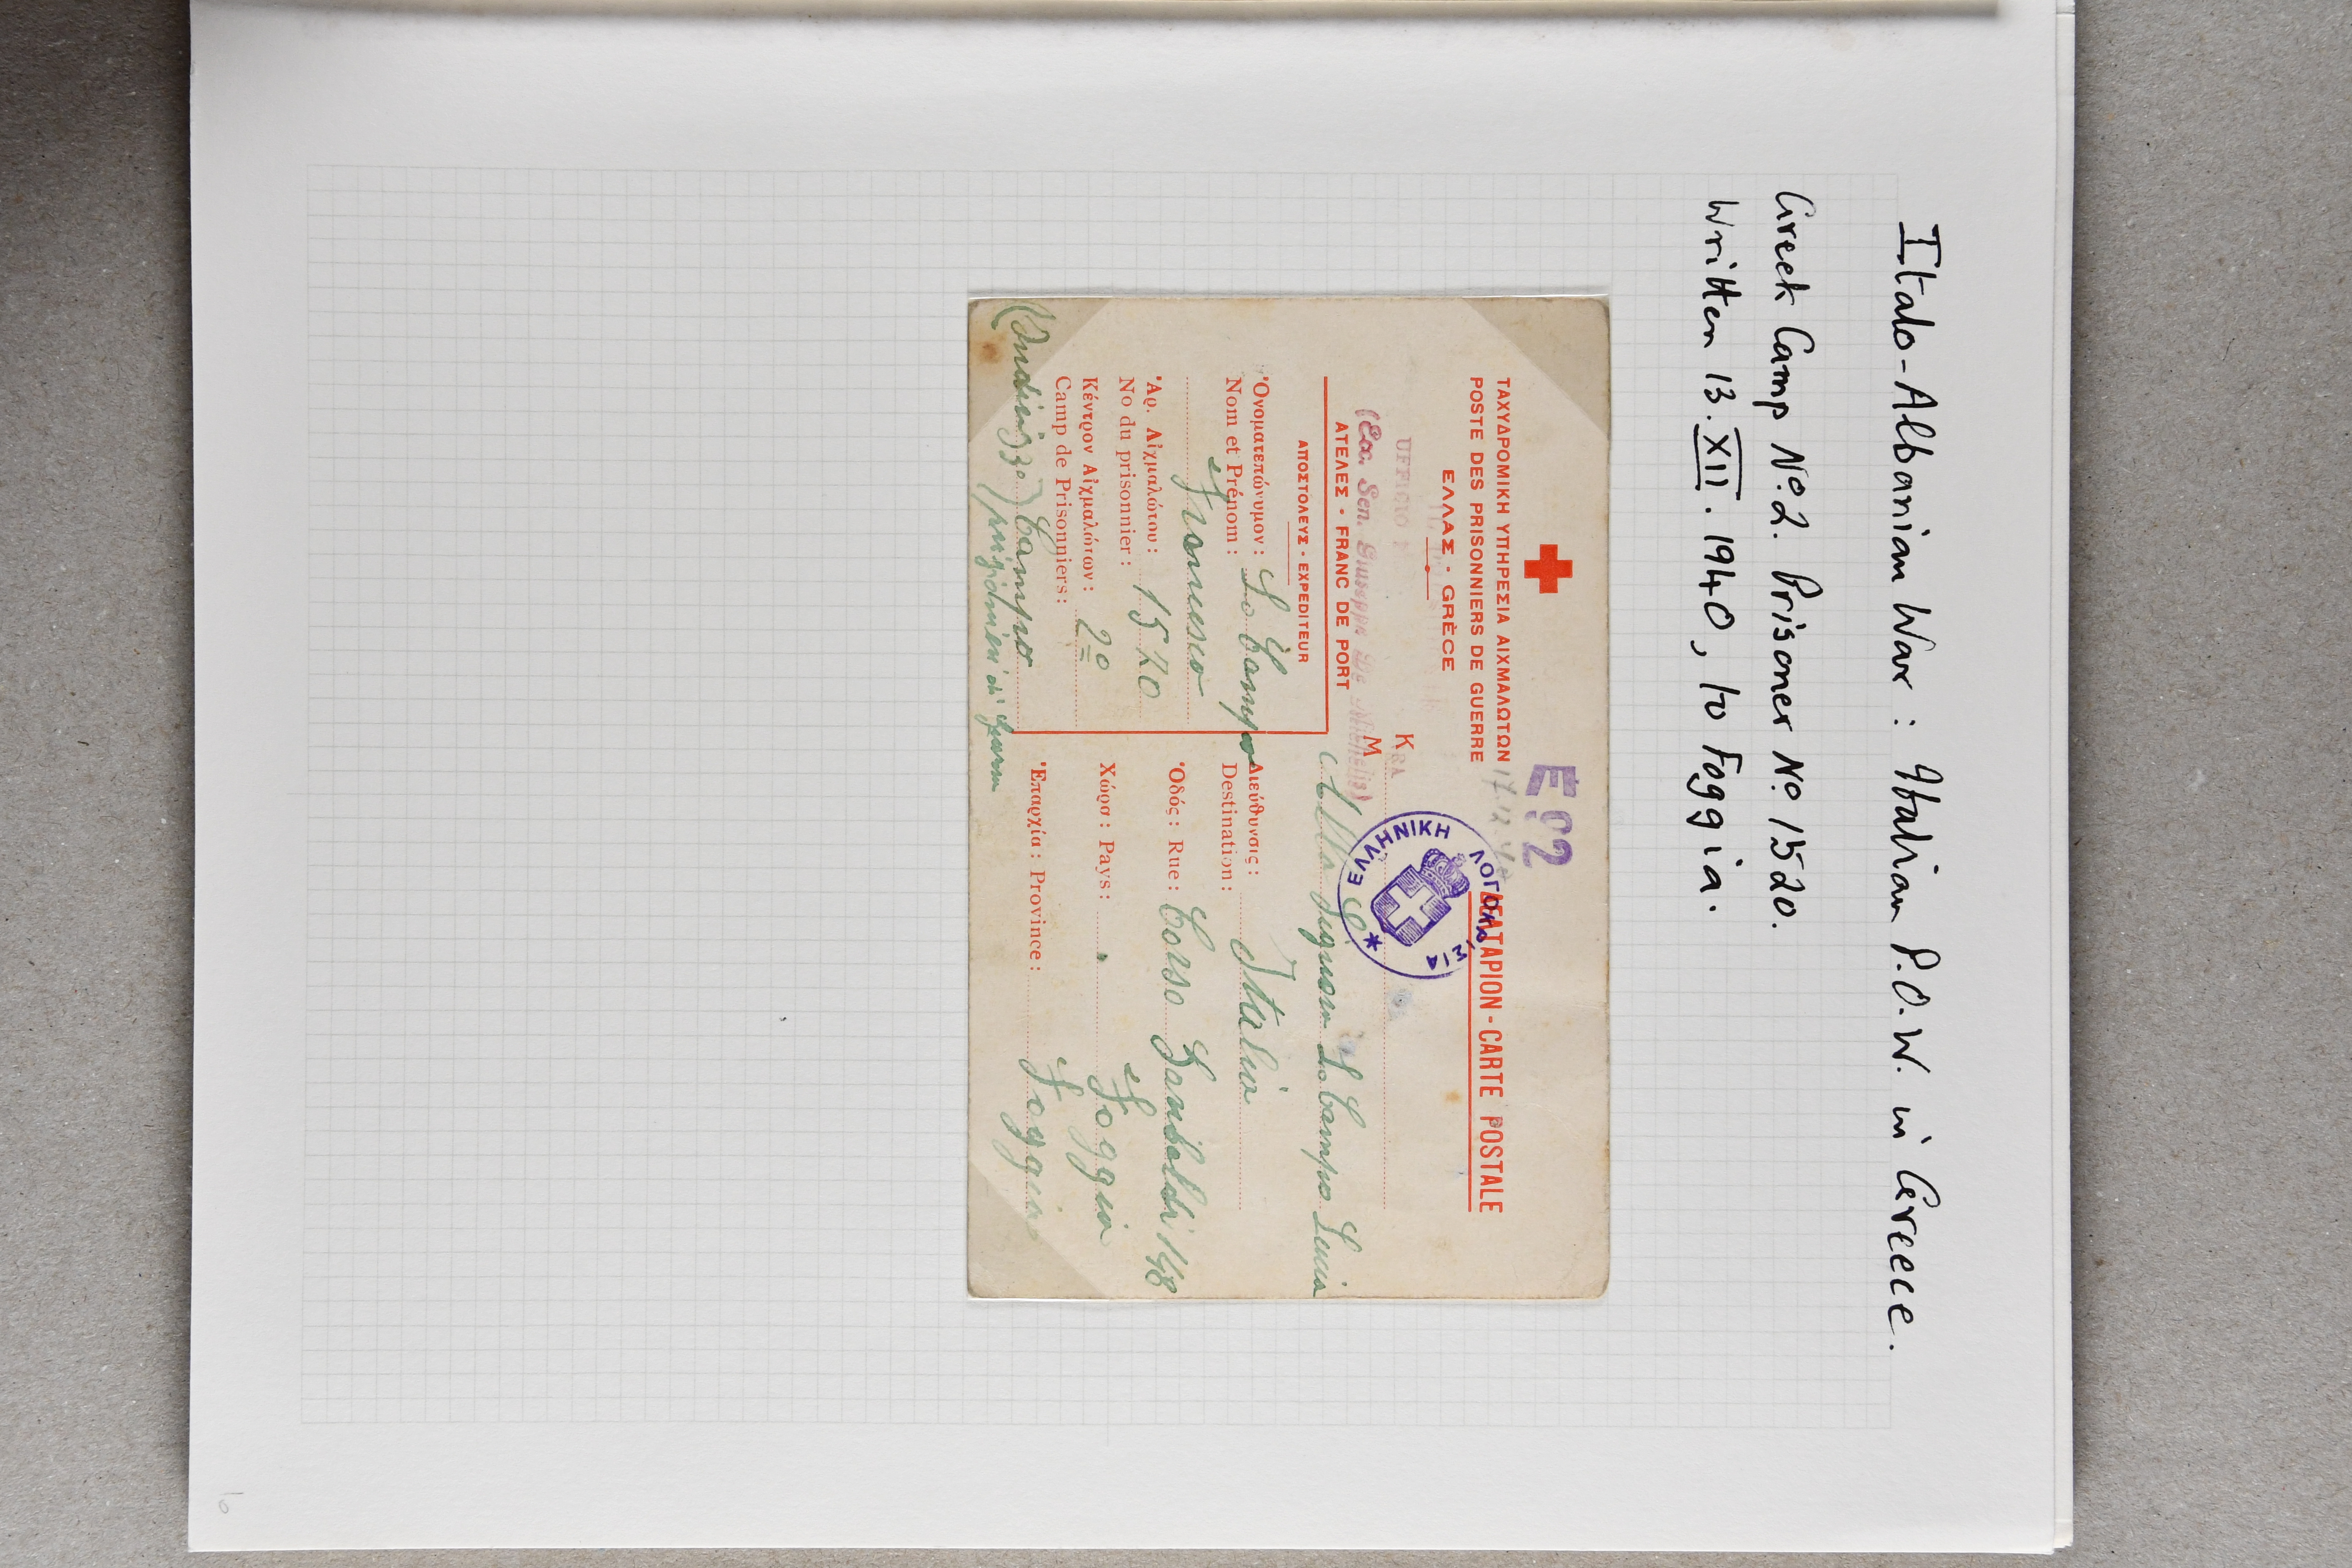 Italo-Albanian War : Italian P.O.W. in Greece.
Greek Camp Nº2. Prisoner Nº 1520.
Written 13.XII.1940, to Foggia.
E92
ΤΑΧΥΔΡΟΜΙΚΗ ΥΠΗΡΕΣΙΑ ΑΙΧΜΑΛΩΤΩΝ
POSTE DES PRISONNIERS DE GUERRE
ΕΛΛΑΣ - GRÈCE
UFFICIO
(Ecc. Sen. Giuseppe De Michelis)
ΑΤΕΛΕΣ - FRANC DE PORT
ΑΠΟΣΤΟΛΕΥΣ - EXPEDITEUR
Ὀνοματεπώνυμον :
Nom et Prénom : Lo Campo
Francesco
Ἀρ. Αἰχμαλώτου :
No du prisonnier : 1520
Κέντρον Αἰχμαλώτων :
Camp de Prisonniers : 2º
(Indirizzo) Campo
prigionieri di guerra
17.12.40
ΔΕΛΤΑΡΙΟΝ - CARTE POSTALE
ΕΛΛΗΝΙΚΗ ΛΟΓΟΚΡΙΣΙΑ
Κ
M
Alla Signora Lo Campo Lucia
Διεύθυνσις :
Destination : Italia
Ὁδός : Rue : Corso Garibaldi 148
Χώρα : Pays : Foggia
Ἐπαρχία : Province : Foggia
6